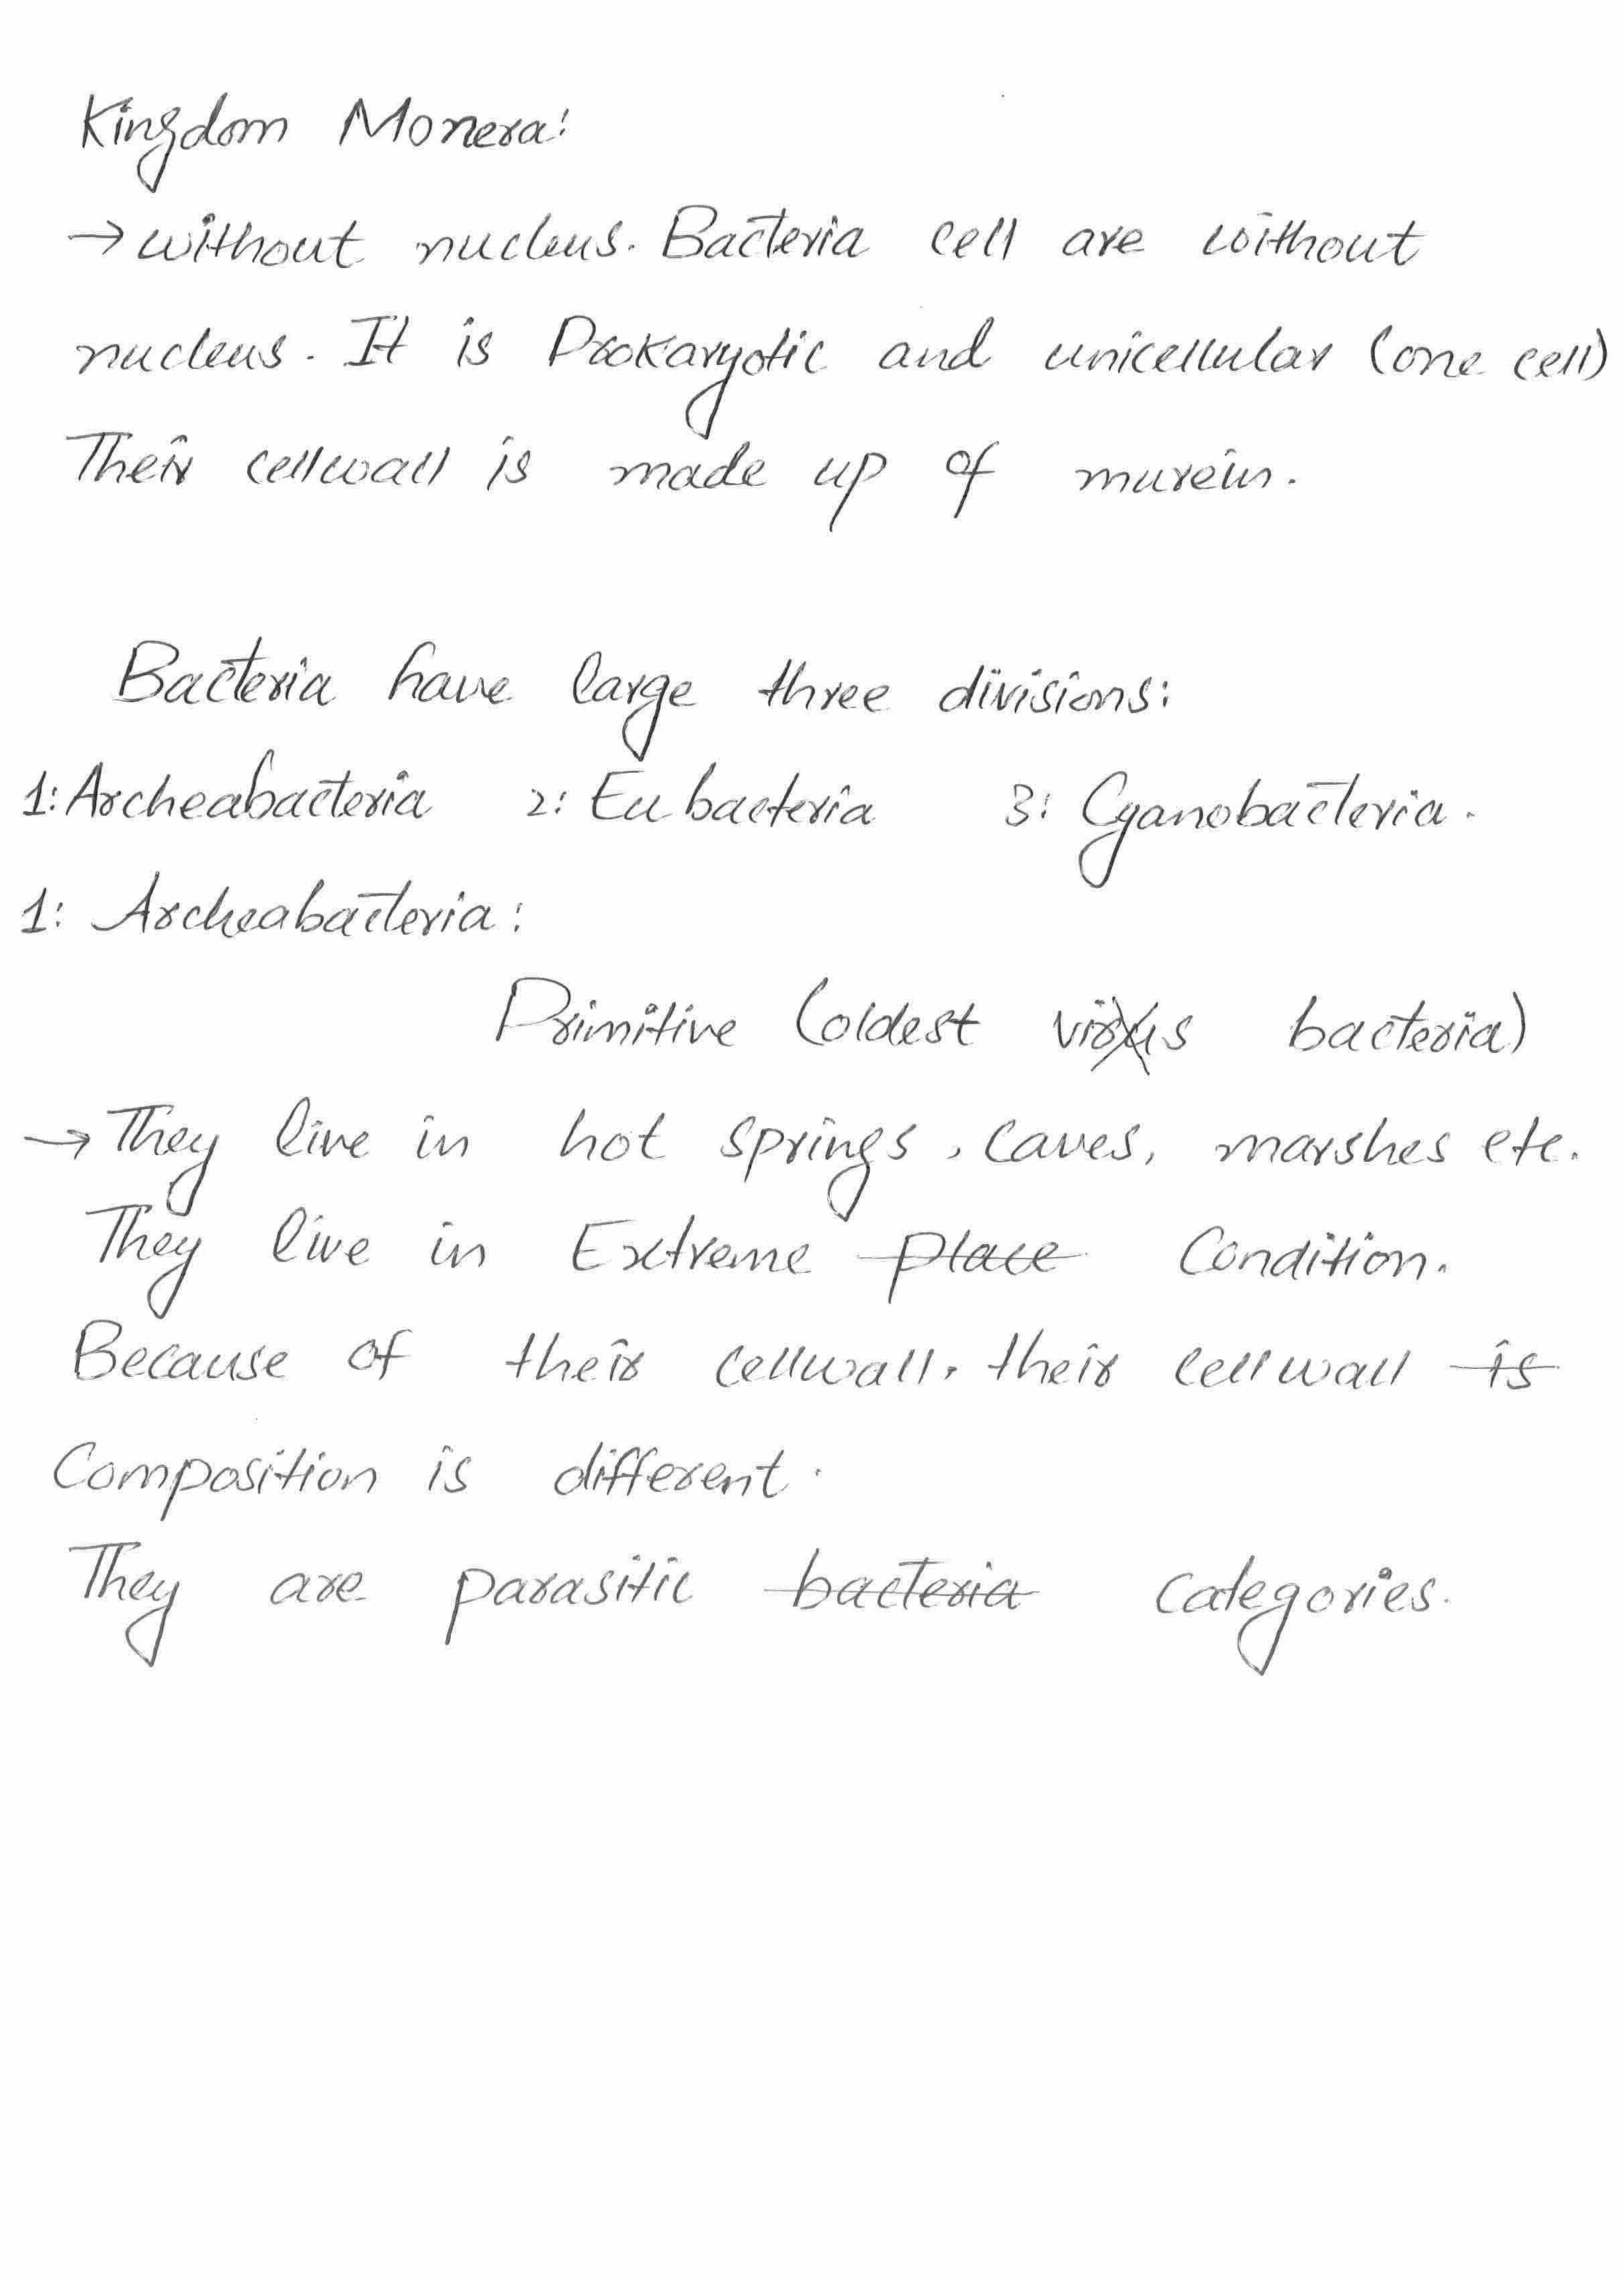 Kingdom Monera:
→ without nucleus. Bacteria cell are without
nucleus. It is Prokaryotic and unicellular (one cell)
Their cellwall is made up of murein.
Bacteria have large three divisions:
1: Archeabacteria 2: Eu bacteria 3: Cyanobacteria.
1: Archeabacteria:
Primitive (oldest virus bacteria)
→ They live in hot springs, caves, marshes etc.
They live in Extreme place Condition.
Because of their cellwall. their cell wall is
Composition is different.
They are parasitic bacteria categories.